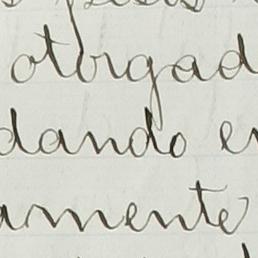 otorgad
dando en
amente